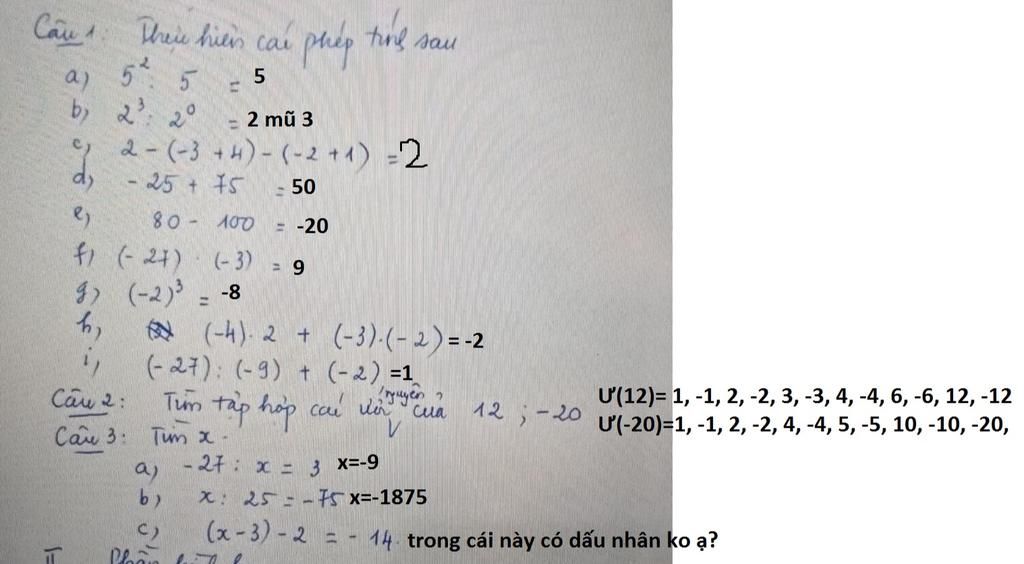 Câu 1: Thực hiện cái phép tính sau
a) 5²: 5 = 5
b) 2³: 2⁰ = 2 mũ 3
c) 2 - (-3 + 4) - (-2 + 1) = 2
d) - 25 + 75 = 50
e) 80 - 100 = -20
f) (- 27) · (-3) = 9
g) (-2)³ = -8
h) (-4). 2 + (-3).(- 2) = -2
i) (- 27): (-9) + (-2) =1
Câu 2: Tìm tập hợp cái ước nguyên của 12 ; -20
Ư(12)= 1, -1, 2, -2, 3, -3, 4, -4, 6, -6, 12, -12
Ư(-20)=1, -1, 2, -2, 4, -4, 5, -5, 10, -10, -20,
Câu 3: Tìm x.
a) -27 : x = 3 x=-9
b) x: 25 = -75 x=-1875
c) (x-3) - 2 = - 14. trong cái này có dấu nhân ko ạ?
II